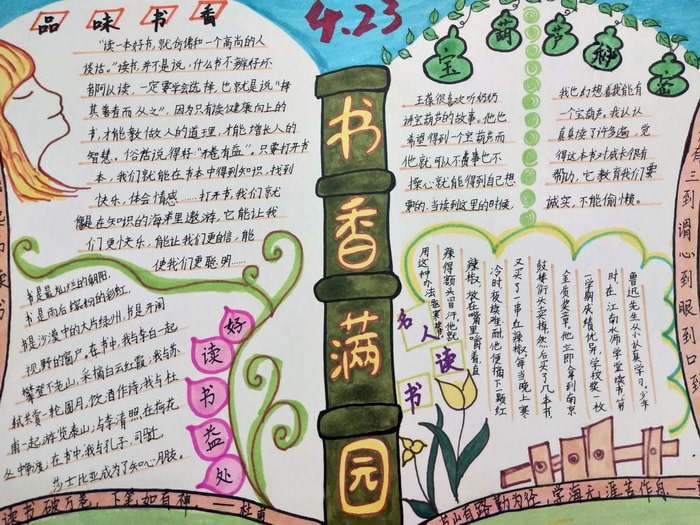 品味书香
4.23
“读一本好书,就仿佛和一个高尚的人
谈话。”读书,并不是说,什么书不辨好坏
都阿以读,一定要学会选择,也就是说“择
其善者而从之”,因为只有读健康向上的
书,才能教做人的道理,才能增长人的
智慧。俗话说得好“开卷有益”。只要打开书
本,我们就能在书本中得到知识,找到
快乐,体会情感……打开书,我们就
像是在知识的海洋里遨游,它能让我
们更快乐,能让我们更自信,能
使我们更聪明……
书是最灿烂的朝阳,
书是雨后缤纷的彩虹,
书是沙漠中的大片绿州,书是开阔
视野的窗户。在书中,我与李白一起
攀登天老山,采摘白云红霞;我与苏
轼共赏一轮圆月,饮酒作诗;我与杜
甫一起游览泰山;与李清照在荷花
丛挣渡。在书中,我与孔子、司马迁、
莎士比亚成为了知心朋友。
好读书益处
书香满园
宝葫芦的秘密
王葆很喜欢听奶奶
讲宝葫芦的故事。他也
希望得到一个宝葫芦,而
他就可以不费事也不
操心就能得到自己想
要的。当读到这里的时候,
我也幻想着我能有
一个宝葫芦。我认认
真真读了许多遍,觉
得这本书对成长很有
帮助,它教育我们要
诚实,不能偷懒。
鲁迅先生从小认真学习。少年
时,在江南水师学堂读书,第
一学期成绩优异,学校奖一枚
金质奖章。他立即拿到南京
鼓楼街头卖掉,然后买了几本书
又买了一串红辣椒。每当晚上寒
冷时,夜读难耐,他便摘下一颗红
辣椒,放在嘴里嚼着,直
辣得额头冒汗。他就
用这种办法驱寒
名人读书
读书破万卷,下笔如有神。——杜甫
书山有路勤为径,学海无涯苦作舟
三到谓心到眼到口